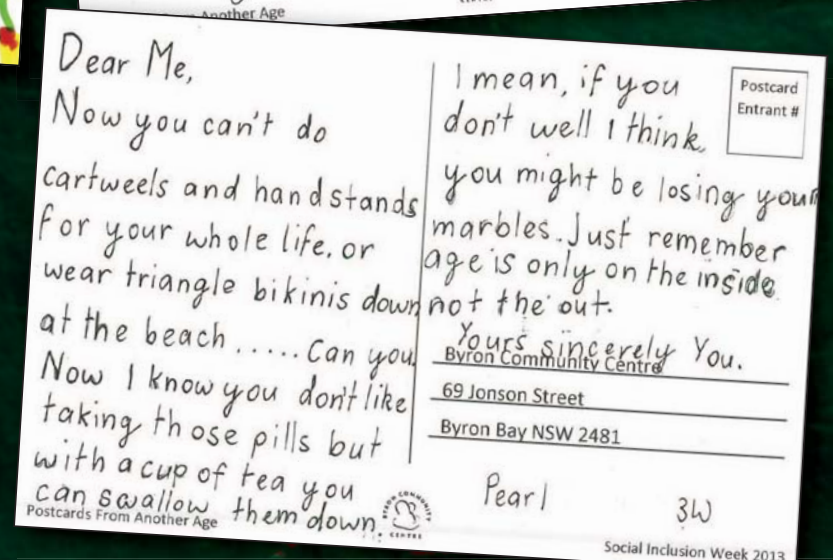 Another Age
Dear Me,
Now you can't do
cartweels and handstands
for your whole life, or
wear triangle bikinis down
at the beach ..... Can you
Now I know you don't like
taking those pills but
with a cup of tea you
can swallow them down.
Postcards From Another Age
BYRON COMMUNITY
CENTRE
I mean, if you
don't well I think,
you might be losing your
marbles. Just remember
age is only on the inside
not the out.
Yours sincerely You.
Postcard
Entrant #
Byron Community Centre
69 Jonson Street
Byron Bay NSW 2481
Pearl 3W
Social Inclusion Week 2013